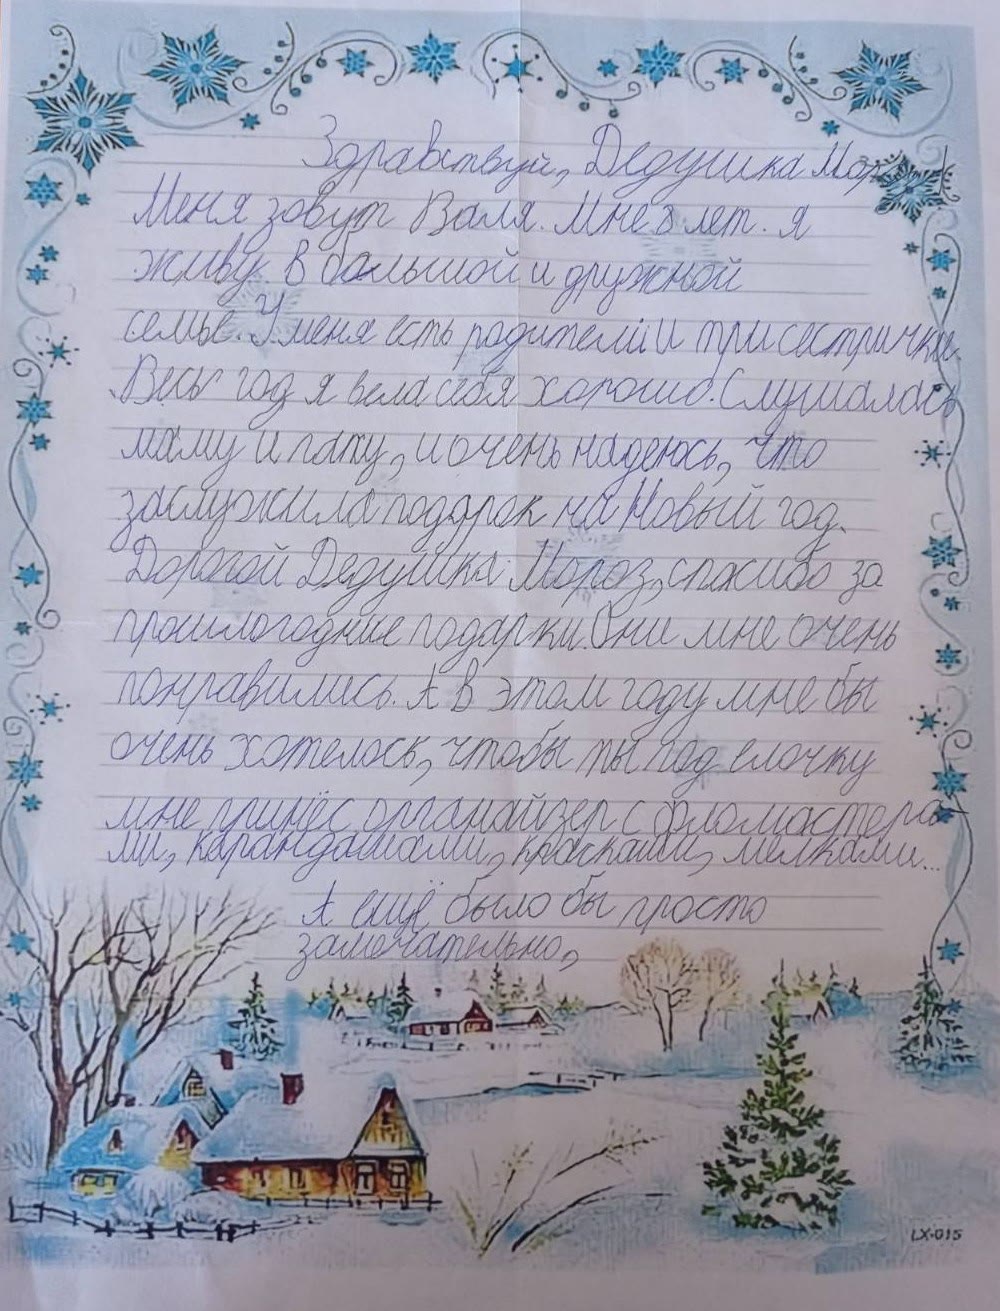 Здравствуй, Дедушка Мор
Меня зовут Валя. Мне 8 лет. Я
живу в большой и дружной
семье. У меня есть родители и три сестрички.
Весь год я вела себя хорошо. Слушалась
маму и папу, и очень надеюсь, что
заслужила подарок на Новый год.
Дорогой Дедушка Мороз, спасибо за
прошлогодние подарки. Они мне очень
понравились. А в этом году мне бы
очень хотелось, чтобы ты под елочку
мне принёс органайзер с фломастера
ми, карандашами, красками, мелками...
А ещё было бы просто
замечательно,
LX-015